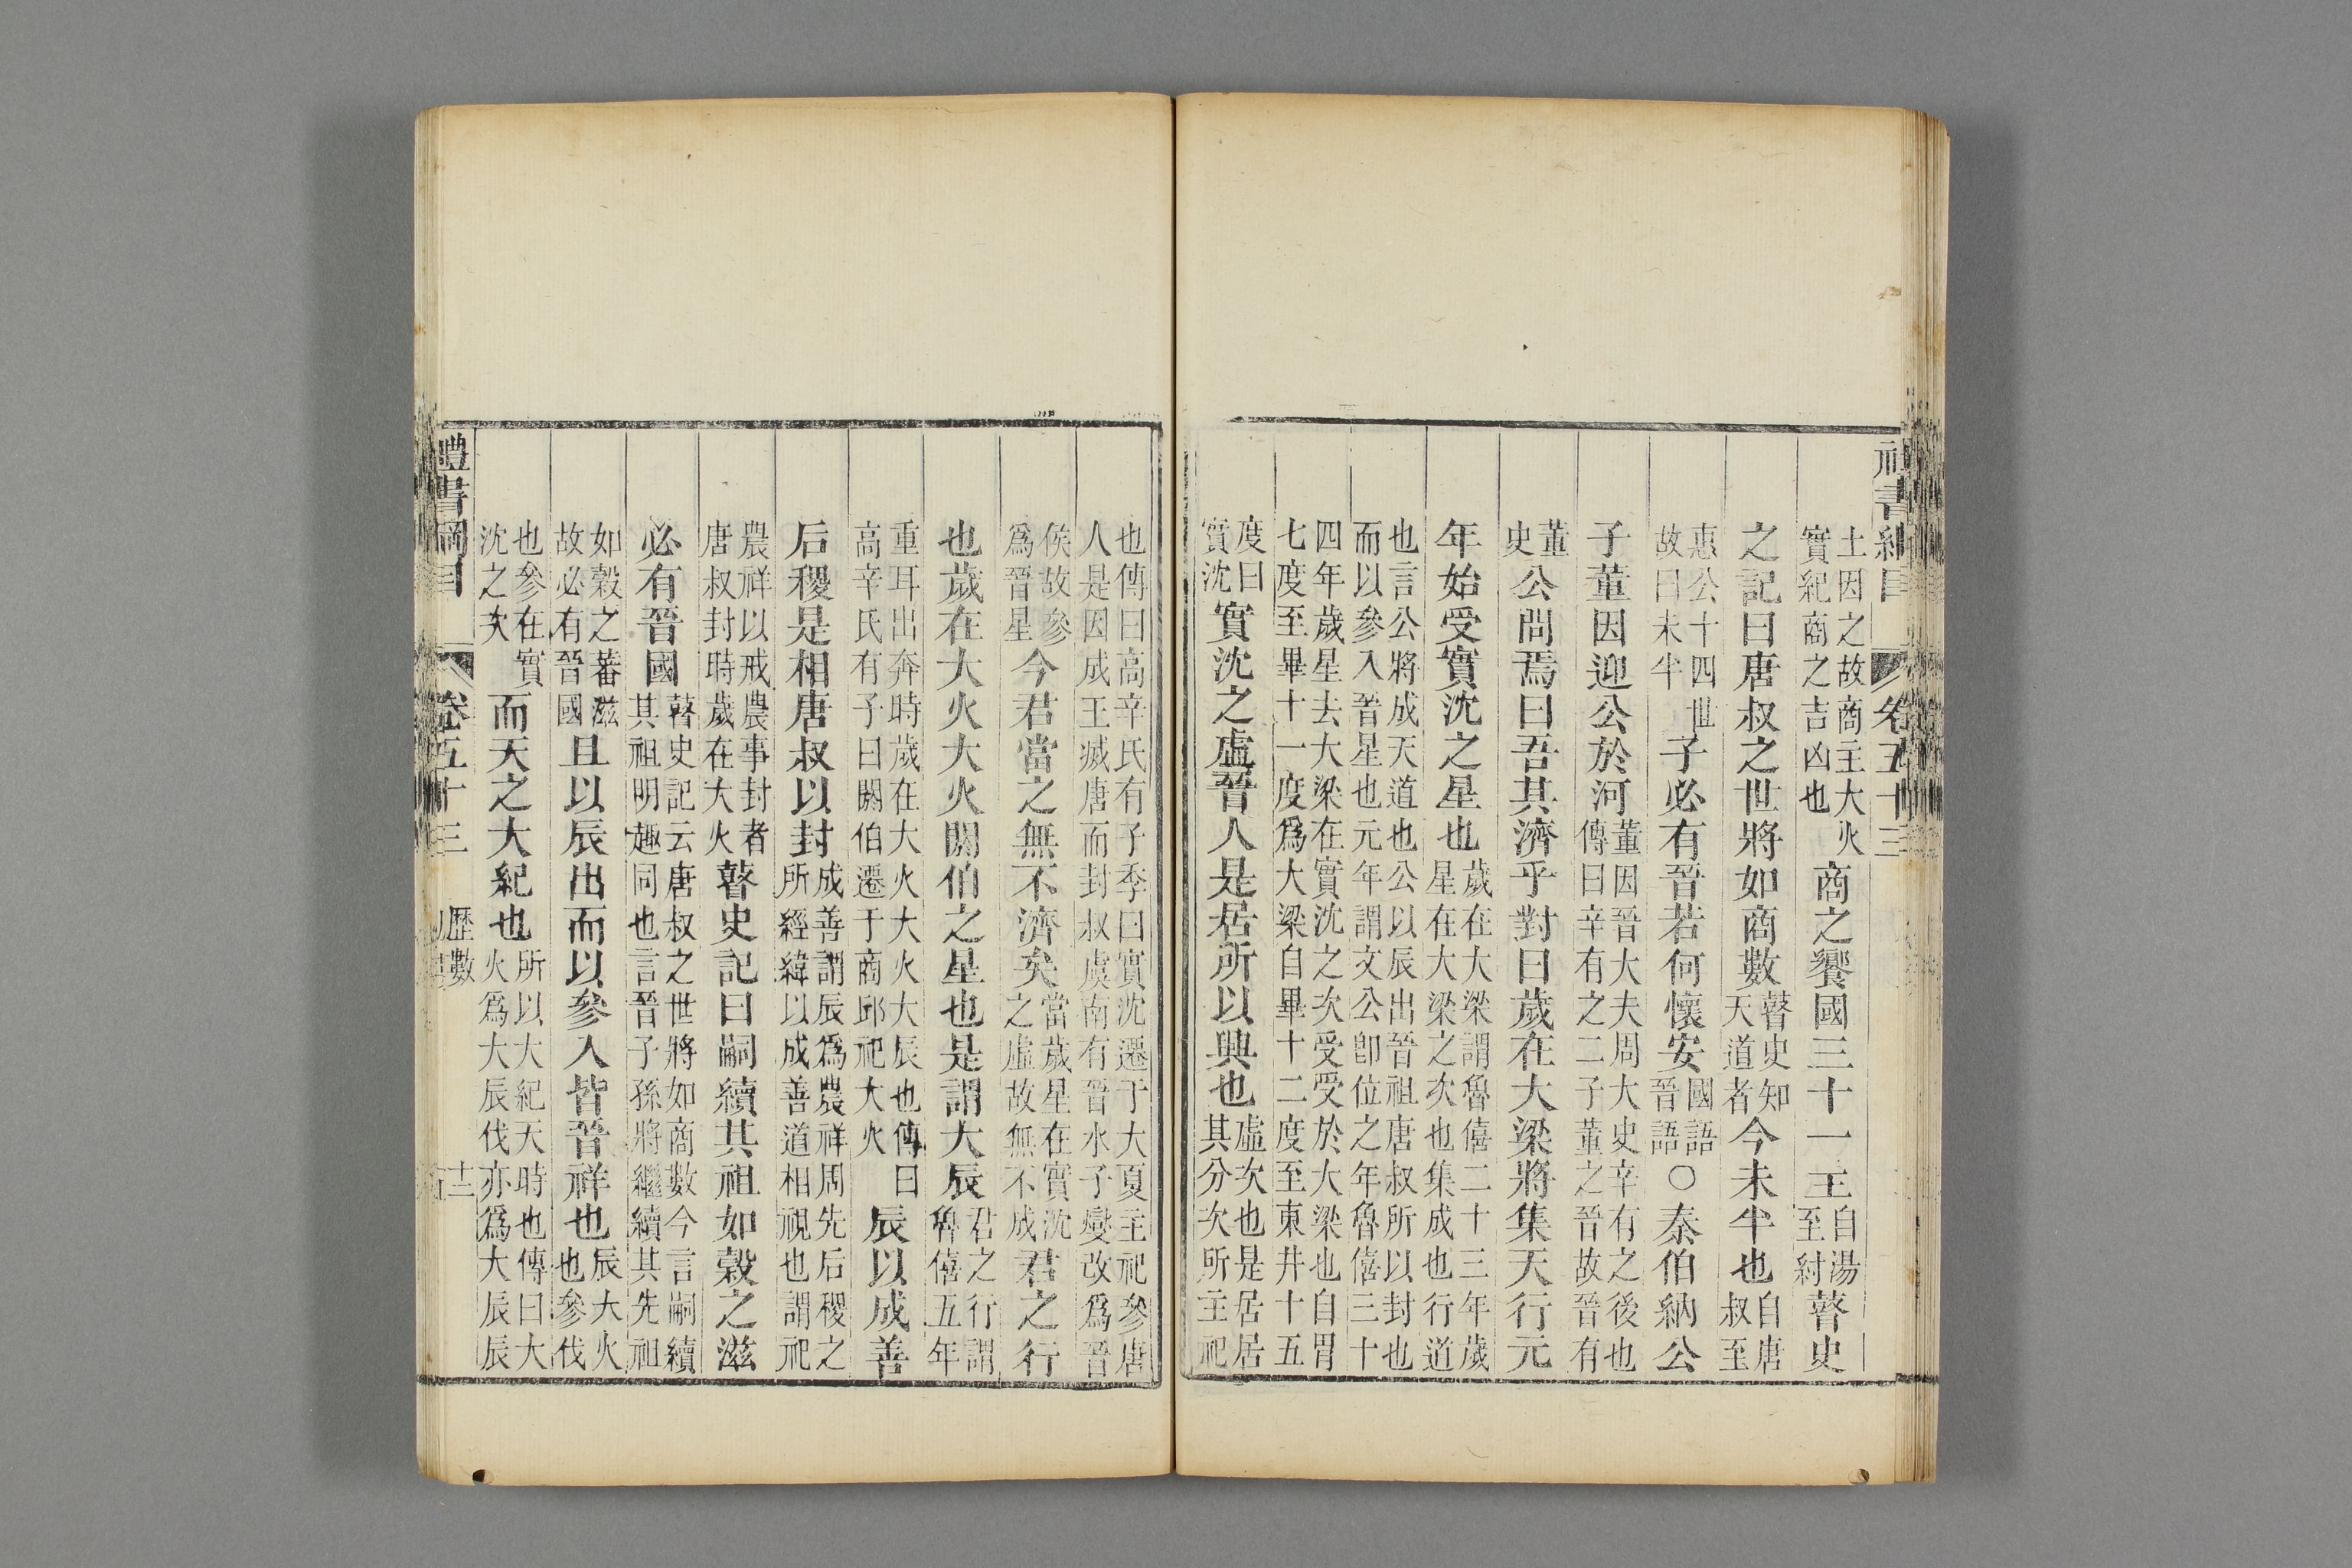 書綱目 卷五十三
土因之故商主大火實紀商之吉凶也商之饗國三十一王自湯至紂瞽史
之記曰唐叔之世將如商數瞽史知天道者今未半也自唐叔至
惠公十四世故曰未半子必有晉若何懷安國語晉語○秦伯納公
子董因迎公於河董因晉大夫周大史辛有之後也傳曰辛有之二子董之晉故晉有
董史公問焉曰吾其濟乎對曰歲在大梁將集天行元
年始受實沈之星也歲在大梁謂魯僖二十三年歲星在大梁之次也集成也行道
也言公將成天道也公以辰出晉祖唐叔所以封也而以參入晉星也元年謂文公卽位之年魯僖三十
四年歲星去大梁在實沈之次受受於大梁也自胃七度至畢十一度爲大梁自畢十二度至東井十五
度曰實沈實沈之虛晉人是居所以興也虛次也是居居其分次所主祀
也傳曰高辛氏有子季曰實沈遷于大夏主祀參唐人是因成王滅唐而封叔虞南有晉水子燮改爲晉
侯故參爲晉星今君當之無不濟矣當歲星在實沈之虛故無不成君之行
也歲在大火大火閼伯之星也是謂大辰君之行謂魯僖五年
重耳出奔時歲在大火大火大辰也傳曰高辛氏有子曰閼伯遷于商邱祀大火辰以成善
后稷是相唐叔以封成善謂辰爲農祥周先后稷之所經緯以成善道相視也謂祀
農祥以戒農事封者唐叔封時歲在大火瞽史記曰嗣續其祖如榖之滋
必有晉國瞽史記云唐叔之世將如商數今言嗣續其祖明趣同也言晉子孫將繼續其先祖
如榖之蕃滋故必有晉國且以辰出而以參入皆晉祥也辰大火也參伐
也參在實沈之次而天之大紀也所以大紀天時也傳曰大火爲大辰伐亦爲大辰辰
禮書綱目 卷五十三 歷數 十二